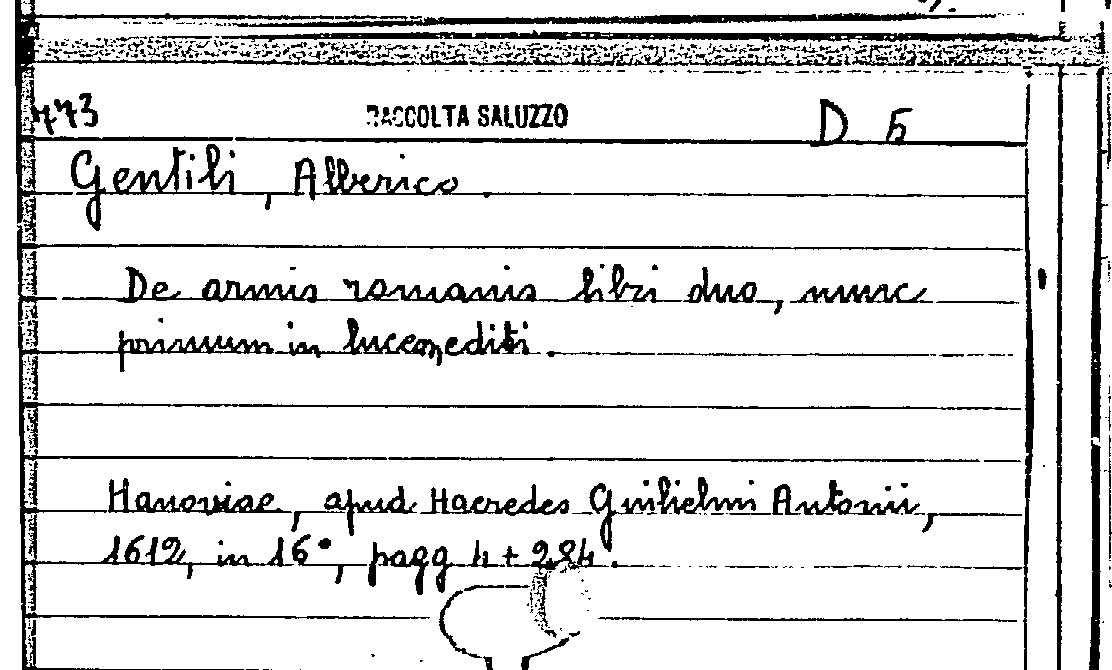 773 RACCOLTA SALUZZO D 5
Gentili, Alberico.
De armis romanis libri duo, nunc
primum in lucem editi.
Hanoviae, apud Haeredes Guilielmi Antonii,
1612, in 16°, pagg 4 + 284.